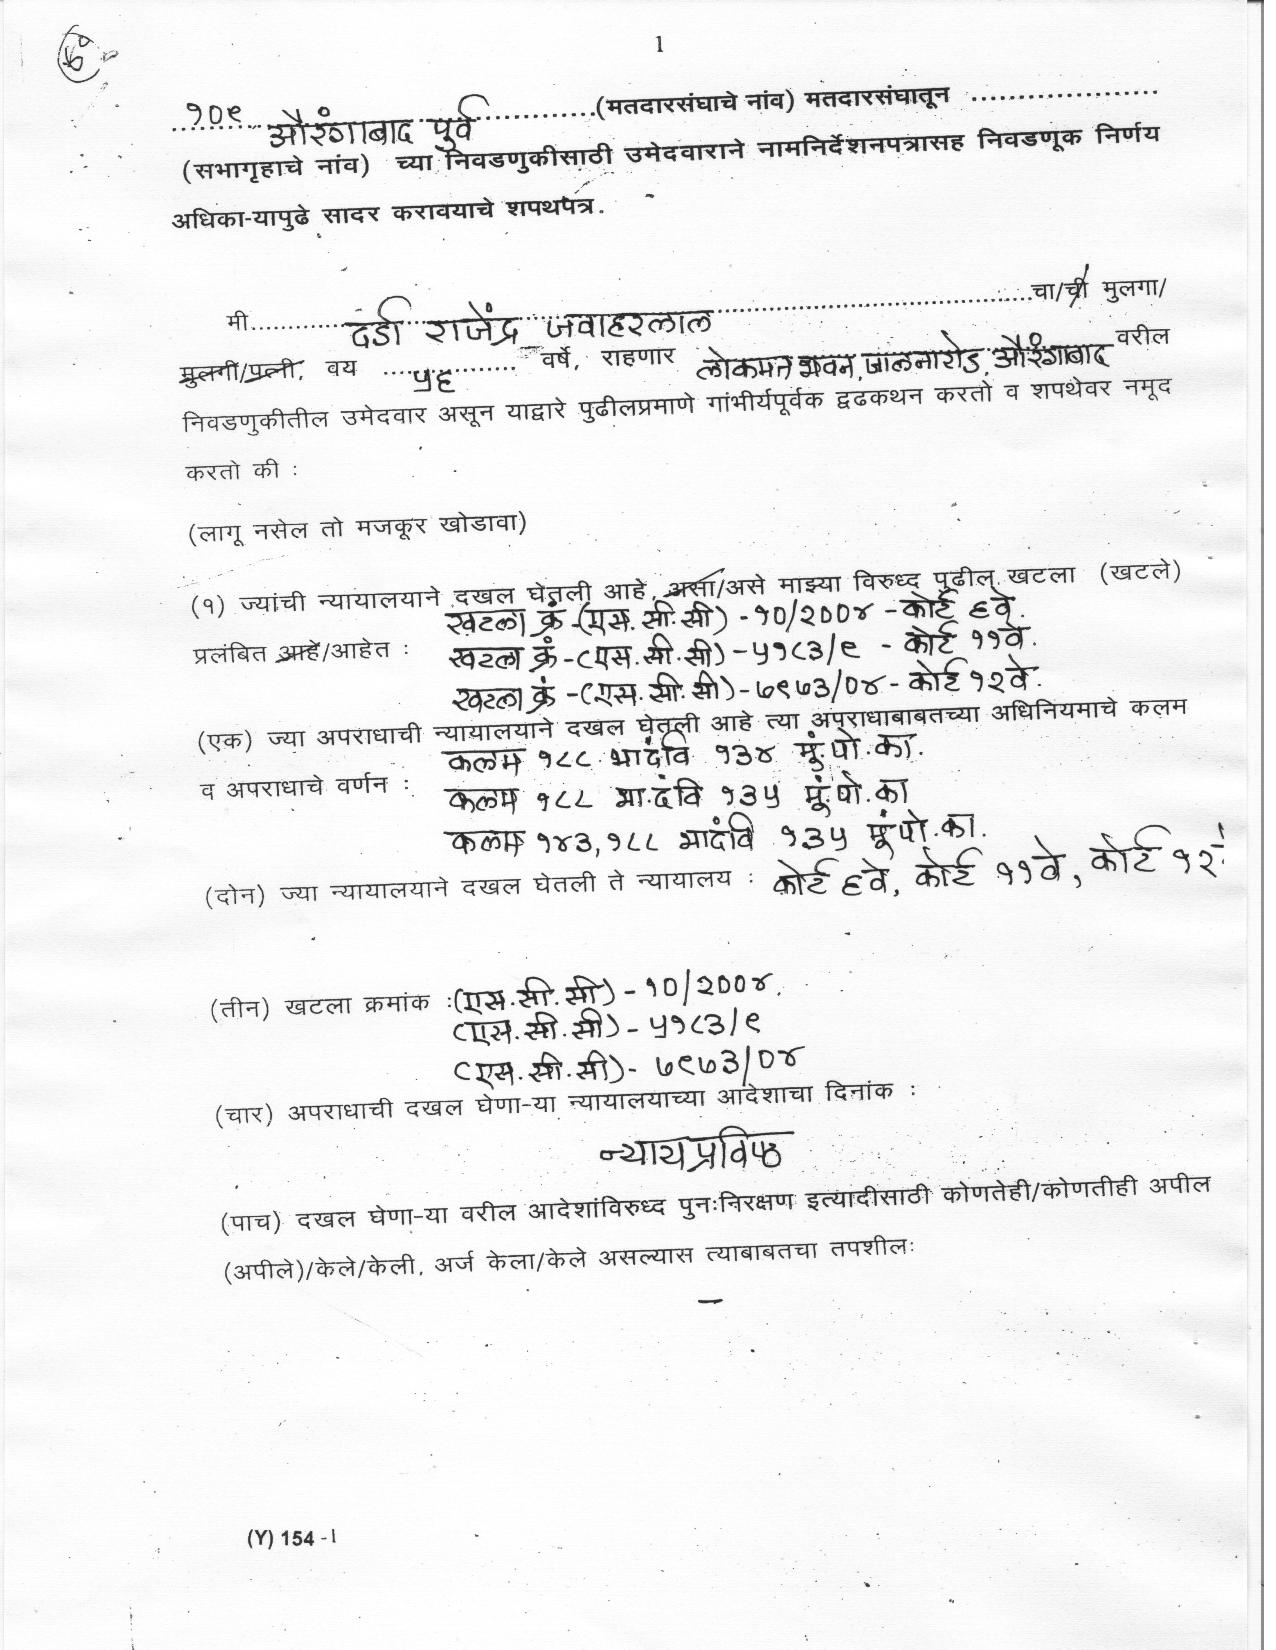 1
१०९ औरंगाबाद पुर्व (मतदारसंघाचे नांव) मतदारसंघातून
(सभागृहाचे नांव) च्या निवडणुकीसाठी उमेदवाराने नामनिर्देशनपत्रासह निवडणूक निर्णय
अधिका-यापुढे सादर करावयाचे शपथपत्र.
मी दर्डा राजेंद्र जवाहरलाल चा/ची मुलगा/
मुलगी/पत्नी, वय ५६ वर्षे, राहणार लोकमत भवन, जालनारोड, औरंगाबाद वरील
निवडणुकीतील उमेदवार असून याद्वारे पुढीलप्रमाणे गांभीर्यपूर्वक द्वढकथन करतो व शपथेवर नमूद
करतो की :
(लागू नसेल तो मजकूर खोडावा)
(१) ज्यांची न्यायालयाने दखल घेतली आहे, असा/असे माझ्या विरुध्द पूढील खटला (खटले)
खटला क्रं -(एस. सी. सी) - १०/२००४ - कोर्ट ६वे.
प्रलंबित आहे/आहेत : खटला क्रं - (एस. सी. सी) - ५१८३/९ - कोर्ट ११वे.
खटला क्रं - (एस. सी. सी) - ७९७३/०४ - कोर्ट १२वे.
(एक) ज्या अपराधाची न्यायालयाने दखल घेतली आहे त्या अपराधाबाबतच्या अधिनियमाचे कलम
कलम १८८ भादंवि १३४ मूं.पो.का.
व अपराधाचे वर्णन : कलम १८८ भा.दंवि १३५ मूं.पो.का
कलम १४३,१८८ भादंवि १३५ मूं पो.का.
(दोन) ज्या न्यायालयाने दखल घेतली ते न्यायालय : कोर्ट ६वे, कोर्ट ११वे, कोर्ट १२वे
(तीन) खटला क्रमांक :(एस.सी.सी) - १०/२००४.
(एस.सी.सी) - ५१८३/९
(एस.सी.सी) - ७९७३/०४
(चार) अपराधाची दखल घेणा-या न्यायालयाच्या आदेशाचा दिनांक :
न्यायप्रविष्ठ
(पाच) दखल घेणा-या वरील आदेशांविरुध्द पुनःनिरक्षण इत्यादीसाठी कोणतेही/कोणतीही अपील
(अपीले)/केले/केली, अर्ज केला/केले असल्यास त्याबाबतचा तपशीलः
–
(Y) 154 -1